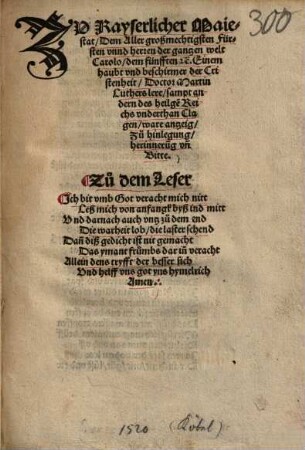 300
ZU Kayserlicher Maie-
stat/ Dem Aller großmechtigsten Für-
sten vnnd herren der gantzen welt
Carolo/ dem fünfften ꝛc. Einem
haubt vnd beschirmer der Cri
stenheit/ Doctor Martin
Luthers lere/ sampt an
dern des heilgē Rei
chs vnderthan Cla
gen/ ware antzeig/
Zů hinlegung/
herinnerūg vñ
Bitte.
Zů dem Leser
Ich bit vmb Got veracht mich nitt
Leß mich von anfangk byß ind mitt
Vnd darnach auch vntz zů dem end
Die warheit lob/ die laster schend
Dañ diß gedicht ist nit gemacht
Das ymant frümbs dar in veracht
Allein dens trifft der besser sich
Vnd helff vns got yns hymelrich
Amen.
1520 (Köbel)